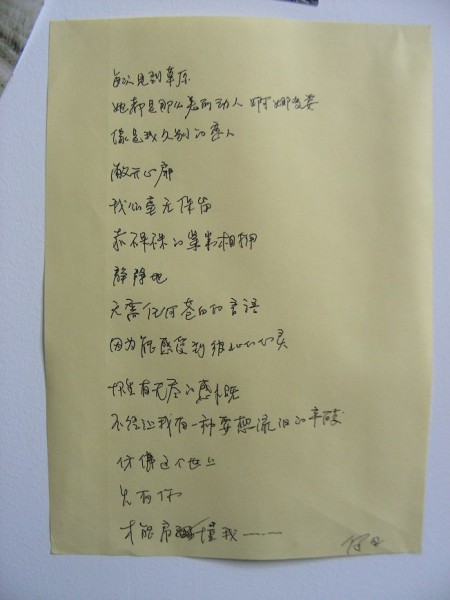 每次见到草原
她都是那么美丽动人 婀娜多姿
像是我久别的恋人
敞开心扉
我们毫无保留
赤裸裸的紧紧相拥
静静地
无需任何苍白的言语
因为能感受到彼此的心灵
怀里有无尽的感慨
不经让我有一种要想流泪的辛酸
仿佛这个世上
只有你
才能 懂我——